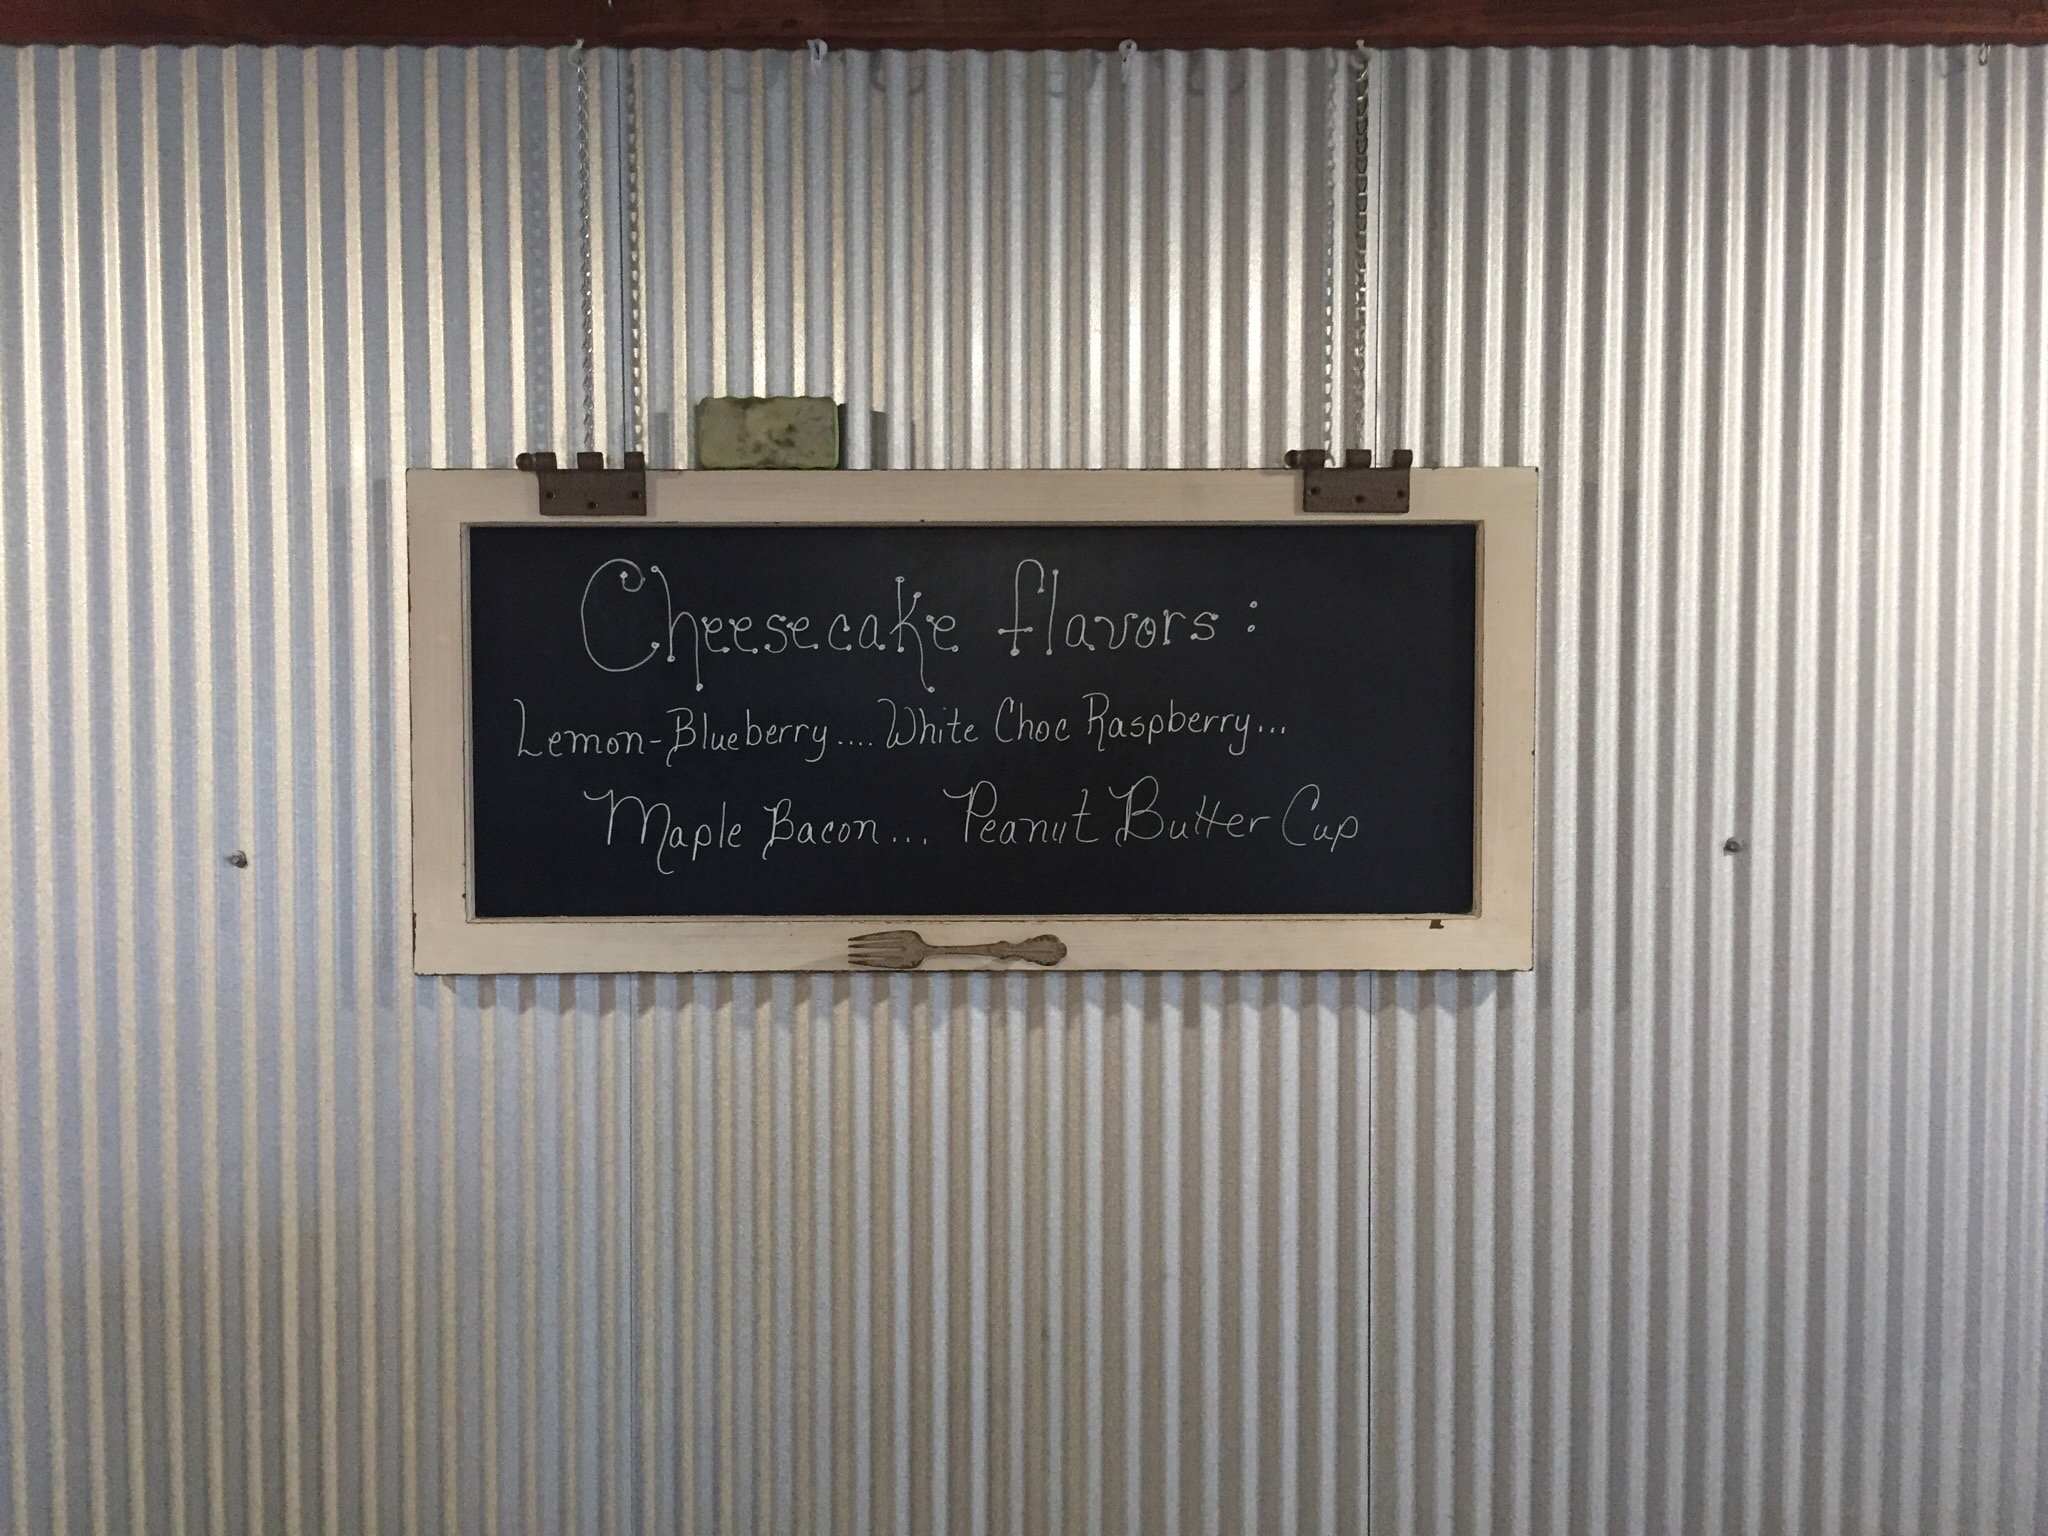 Cheesecake flavors:
Lemon-Blueberry....White Choc Raspberry...
Maple Bacon... Peanut Butter Cup